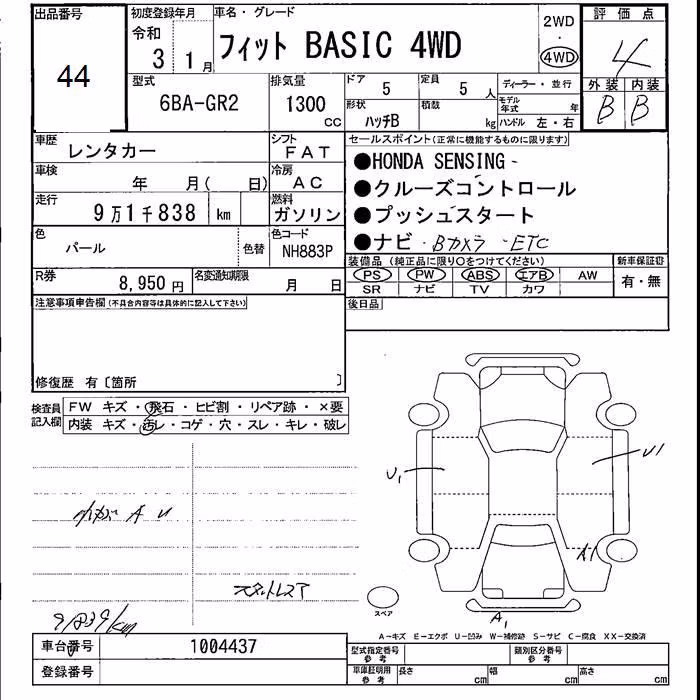 出品番号 44
初度登録年月 令和 3 1月
車名・グレード フィット BASIC 4WD
2WD ・ 4WD
評価点 4
外装 B 内装 B
型式 6BA-GR2
排気量 1300 cc
ドア 5
定員 5 人
形状 ハッチB
積載 kg
ディーラー・並行
モデル年式 年
ハンドル 左・右
車歴 レンタカー
シフト FAT
車検 年 月( 日)
冷房 AC
走行 9万1千838 km
燃料 ガソリン
色 パール 色替
色コード NH883P
R券 8,950円
名変通知期限 月 日
セールスポイント(正常に機能するものに限ります)
●HONDA SENSING
●クルーズコントロール
●プッシュスタート
●ナビ・Bカメラ・ETC
装備品(純正品に限り○をつけてください)
新車保証書
PS PW ABS エアB AW
有・無
SR ナビ TV カワ
後日品
注意事項申告欄(不具合内容等は具体的に記入して下さい)
修復歴 有〔箇所 〕
検査員記入欄
FW キズ・飛石・ヒビ割・リペア跡・×要
内装 キズ・汚レ・コゲ・穴・スレ・キレ・破レ
U1
U1
A U
A1
A1
スペア
91839km
A-キズ E-エクボ U-凹み W-補修跡 S-サビ C-腐食 XX-交換済
車台番号 1004437
登録番号
型式指定番号 参考
類別区分番号 参考
車庫証明用 参考 長さ cm 幅 cm 高さ cm